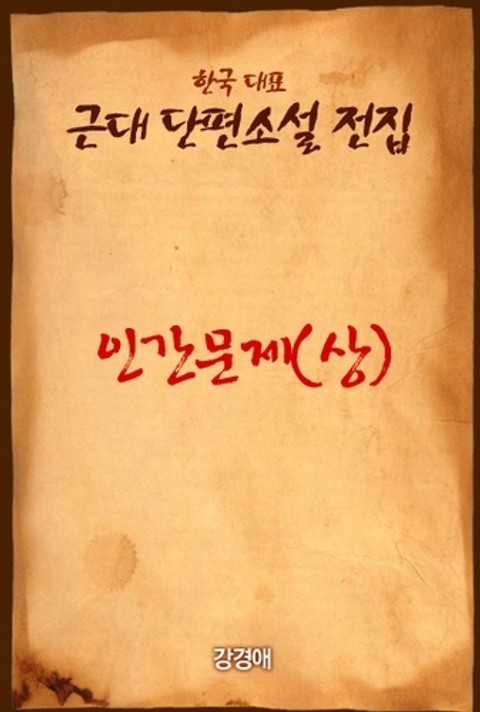 한국 대표
근대 단편소설 전집
인간문제(상)
강경애